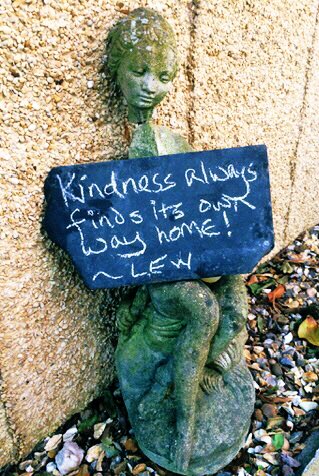 Kindness always
finds its own
way home!
~ LEW